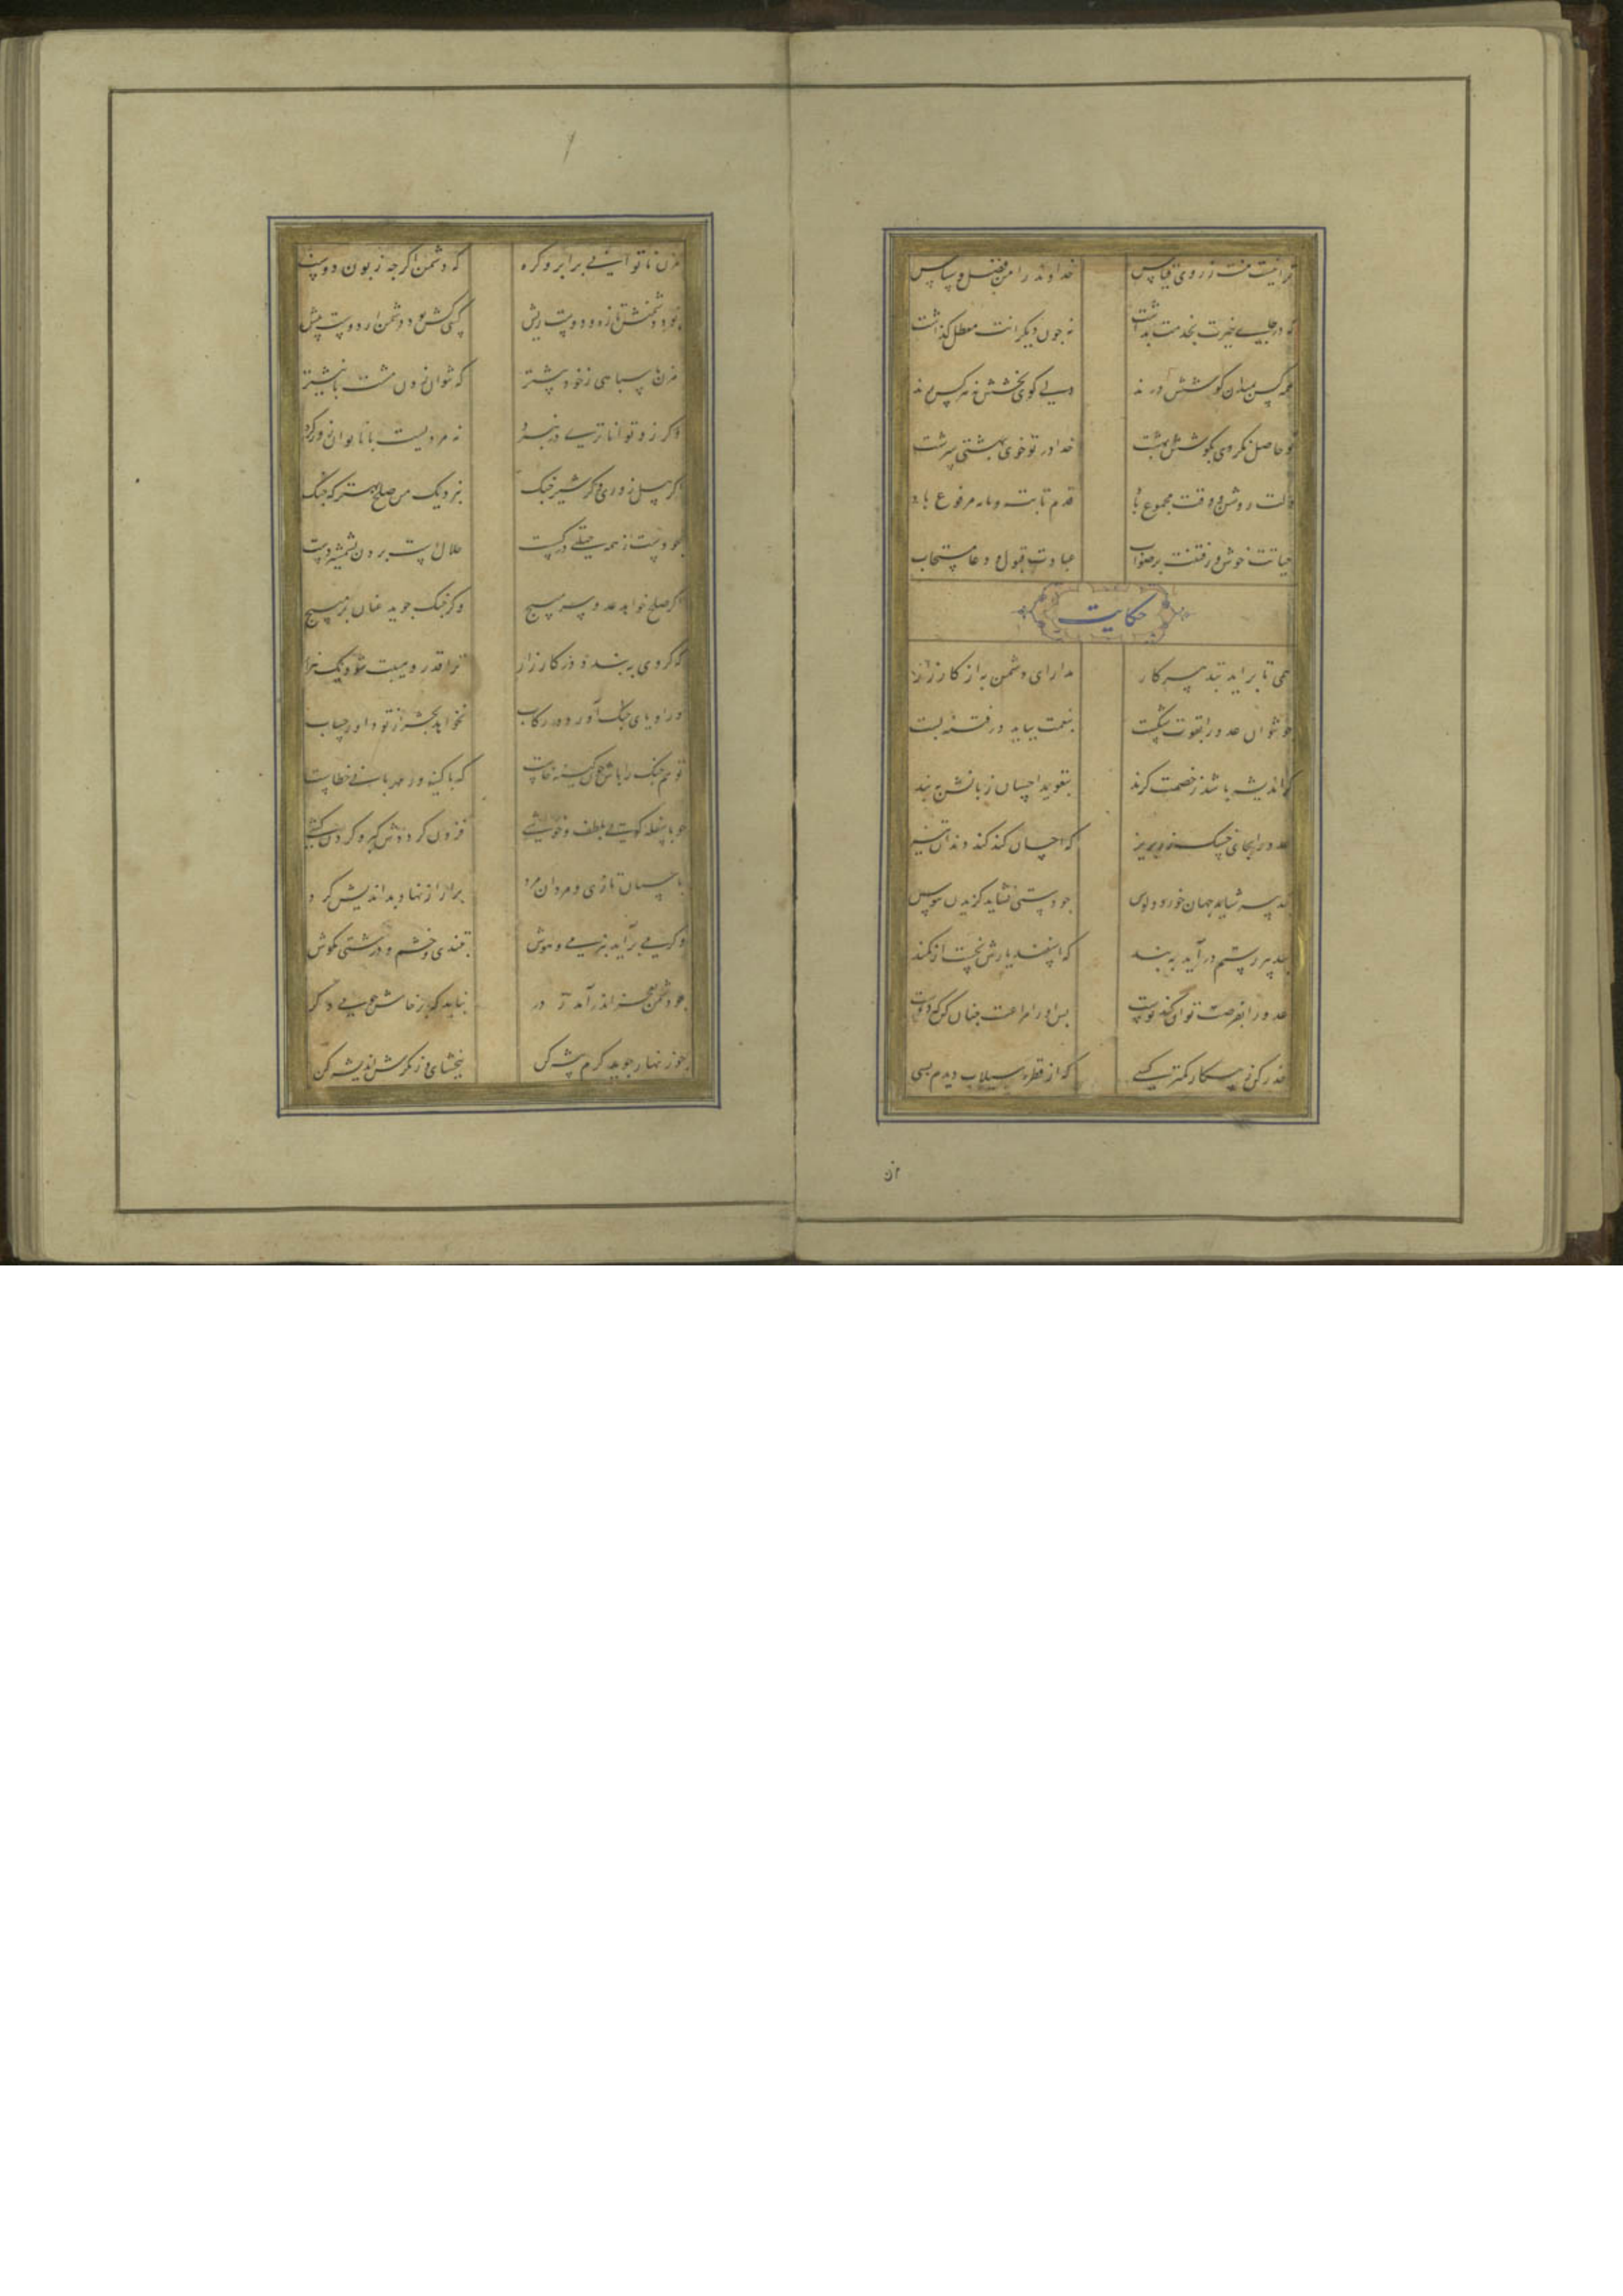 ترا نیست منت ز روی قیاس خداوند را من فضل و سپاس
که در خیرت بخدمت بداشت نه چون دیگرانت معطل کذاشت
همه کس میدان کوشش درند ولی کوی بخشش نه هر کس برند
تو حاصل نکردی بکوشش بهشت خدا در تو خوی بهشتی سرشت
دلت روشن و وقت مجموع باد قدم ثابت و پایه مرفوع باد
حیاتت خوش و رفتنت بر صواب عبادت قبول و دعا مستجاب
حکایت
همی تا براید تدبیر کار مدارای دشمن به از کارزار
چو نتوان عدو را بقوت شکست بنعمت بباید در فتنه بست
کر اندیشه باشد ز خصمت کزند بتعوید احسان زبانش ببند
عدو را بجای خسک زر بریز که احسان کند کند دندان تیز
بتدبیر شاید جهان خورد و لوس چو دستی نشاید کزیدن ببوس
بتدبیر رستم درآید به بند که اسفندیارش نجست از کمند
عدو را بفرصت توان کند پوست پس او را مراعات چنان کن که دوست
حذر کن ز پیکار کمتر کسی که از قطره سیلاب دیدم بسی
مزن
مزن تا توانی بر ابرو کره که دشمن اکر چه زبون دوست به
بود دشمنش تازه و دوست ریش کسی کش بود دشمن از دوست بیش
مزن با سپاهی ز خود بیشتر که نتوان زدن مشت با نیشتر
وکر زو تواناتری در نبرد نه مردیست با ناتوان زور کرد
اکر پیل زوری وکر شیر جنک بنزدیک من صلح بهتر که جنک
چو دست از همه حیلتی در کسست حلال است بردن بشمشیر دست
اکر صلح خواهد عدو سر مپیچ وکر جنک جوید عنان بر مپیچ
که کر وی ببندد در کارزار ترا قدر و هیبت شود یک هزار
ور او پای جنک آورد در رکاب نخواهد بحشر از تو داور حساب
تو هم جنک را باش چون کینه خاست که با کینه ور مهربانی خطاست
چو با سفله کویی بلطف و خوشی فزون کرددش کبر و کردن کشی
باسبان تازی و مردان مرد برار از نهاد بداندیش کرد
وکر می برآید بنرمی و هوش بتندی و خشم و درشتی مکوش
چو دشمن بعجز اندر آمد ز در نباید که پرخاش جویی دکر
چو زنهار جوید کرم پیشه کن ببخشای و از مکرش اندیشه کن